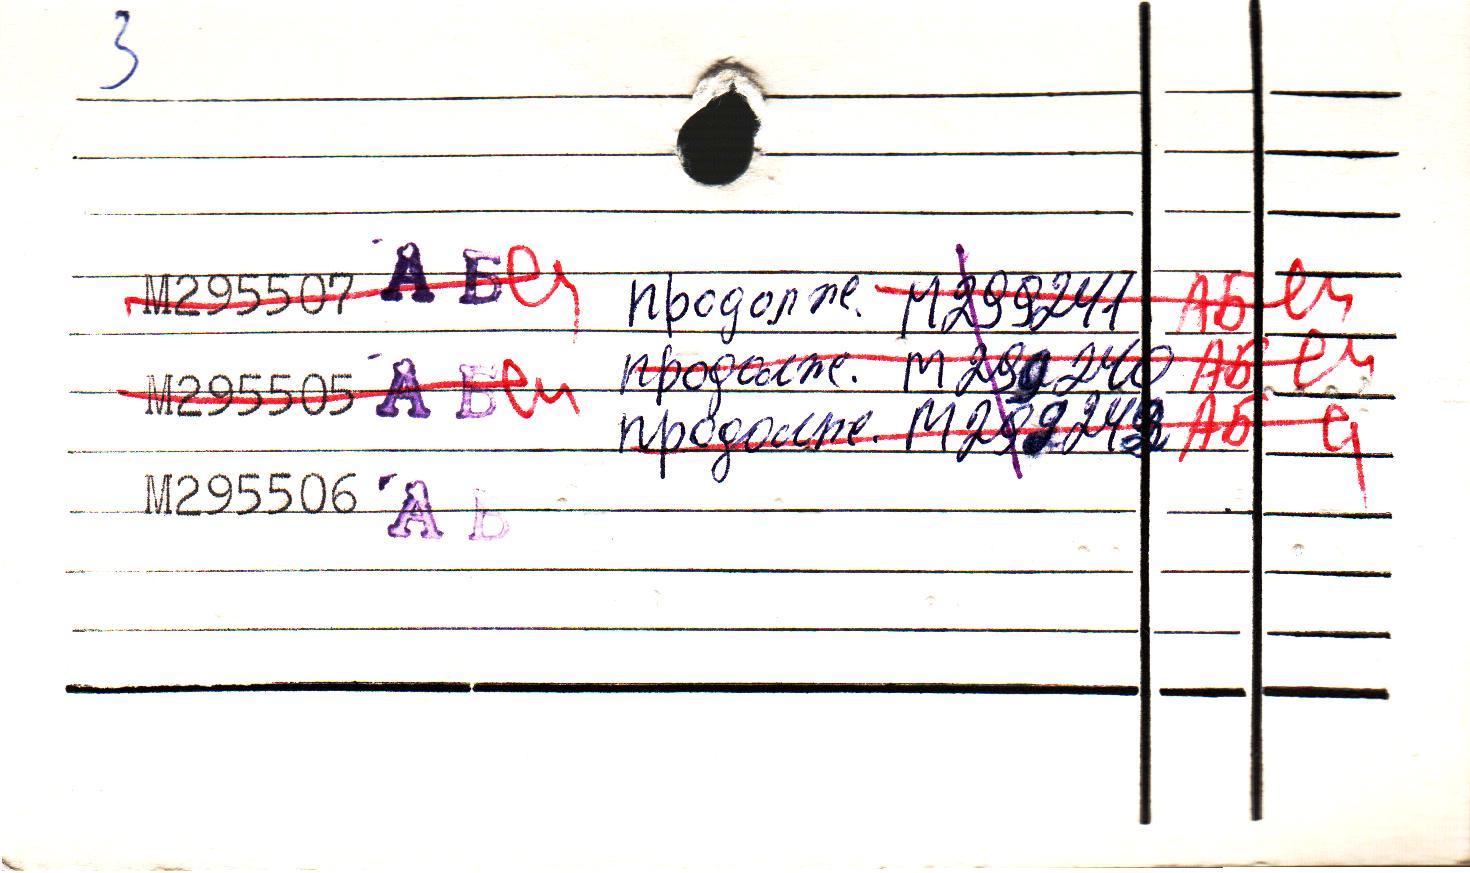 3
М295507 А Б ец продолже. М299241 АБ ец
М295505 А Б ец продолже. М299240 АБ ец
продолже. М299242 АБ ц
М295506 А Б